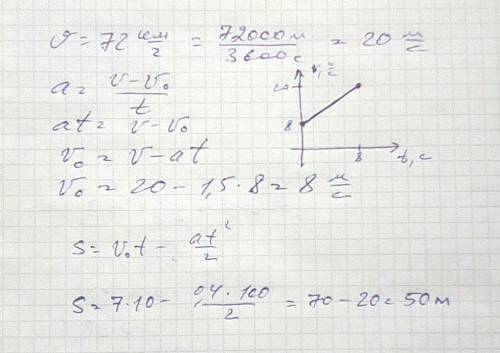 v = 72 км/ч = 72000 м / 3600 с = 20 м/с
a = (v - v₀) / t
at = v - v₀
v₀ = v - at
v₀ = 20 - 1,5 · 8 = 8 м/с
v, м/с
20
8
8
t, с
S = v₀t - at² / 2
S = 7 · 10 - 0,4 · 100 / 2 = 70 - 20 = 50 м